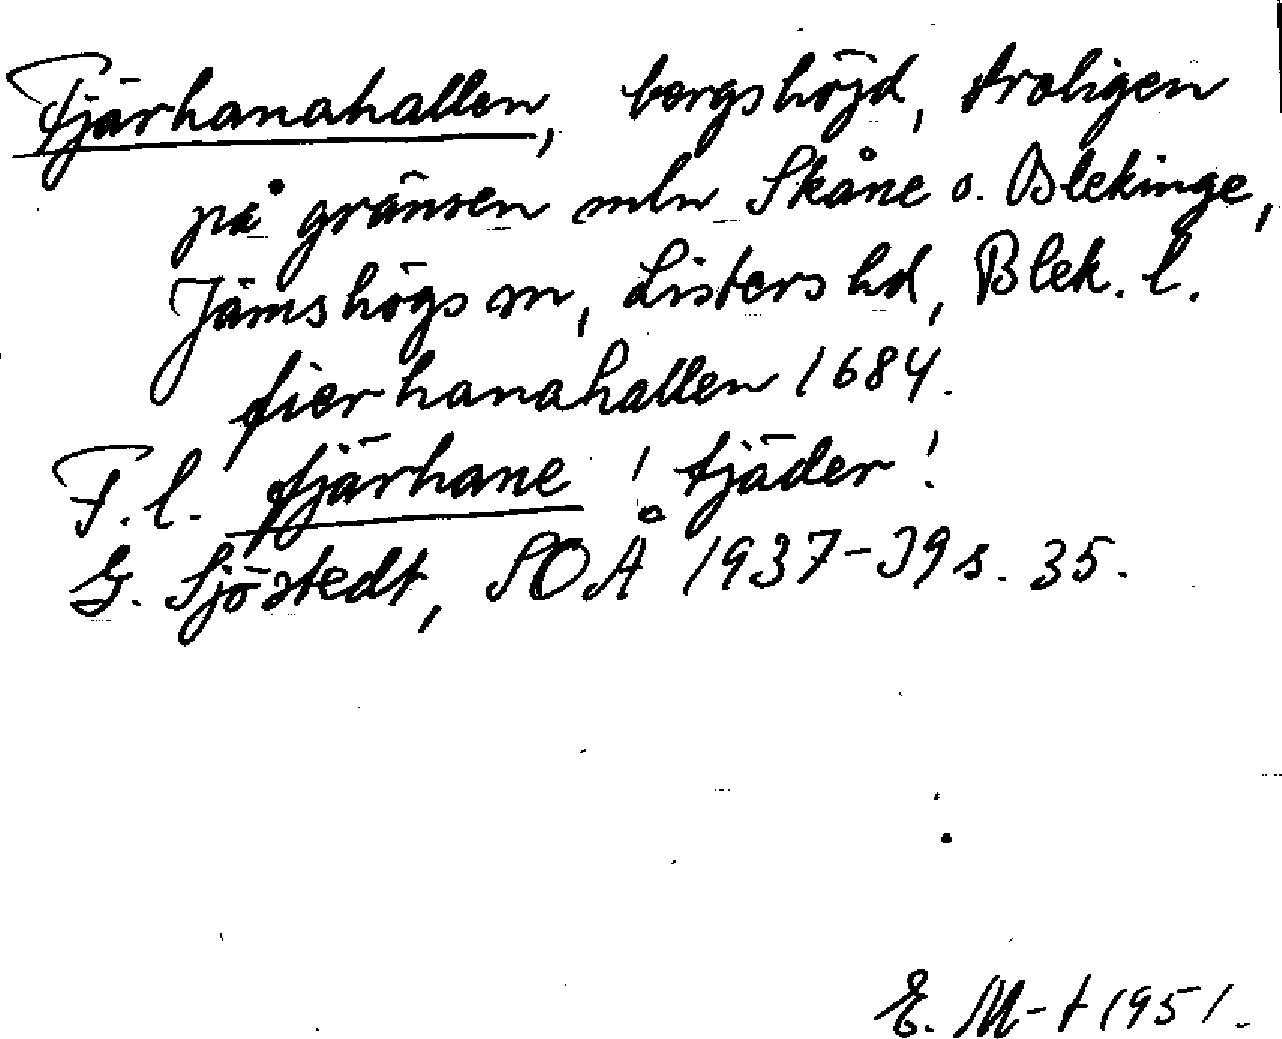 Fjärhanahallen, bergshöjd, troligen
på gränsen mln Skåne o. Blekinge,
Jämshögs sn, Listers hd, Blek. l.
fierhanahallen 1684.
F. l. fjärhane 'tjäder'.
G. Sjöstedt, SOÅ 1937-39 s. 35.
E. M-t 1951.